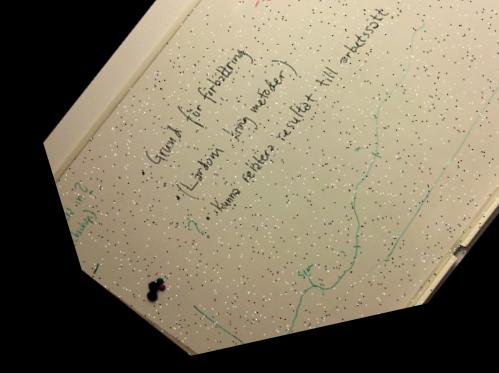 • Grund för förbättring
• (Lärdom kring metoder)
• Kunna relatera resultat till arbetssätt
?